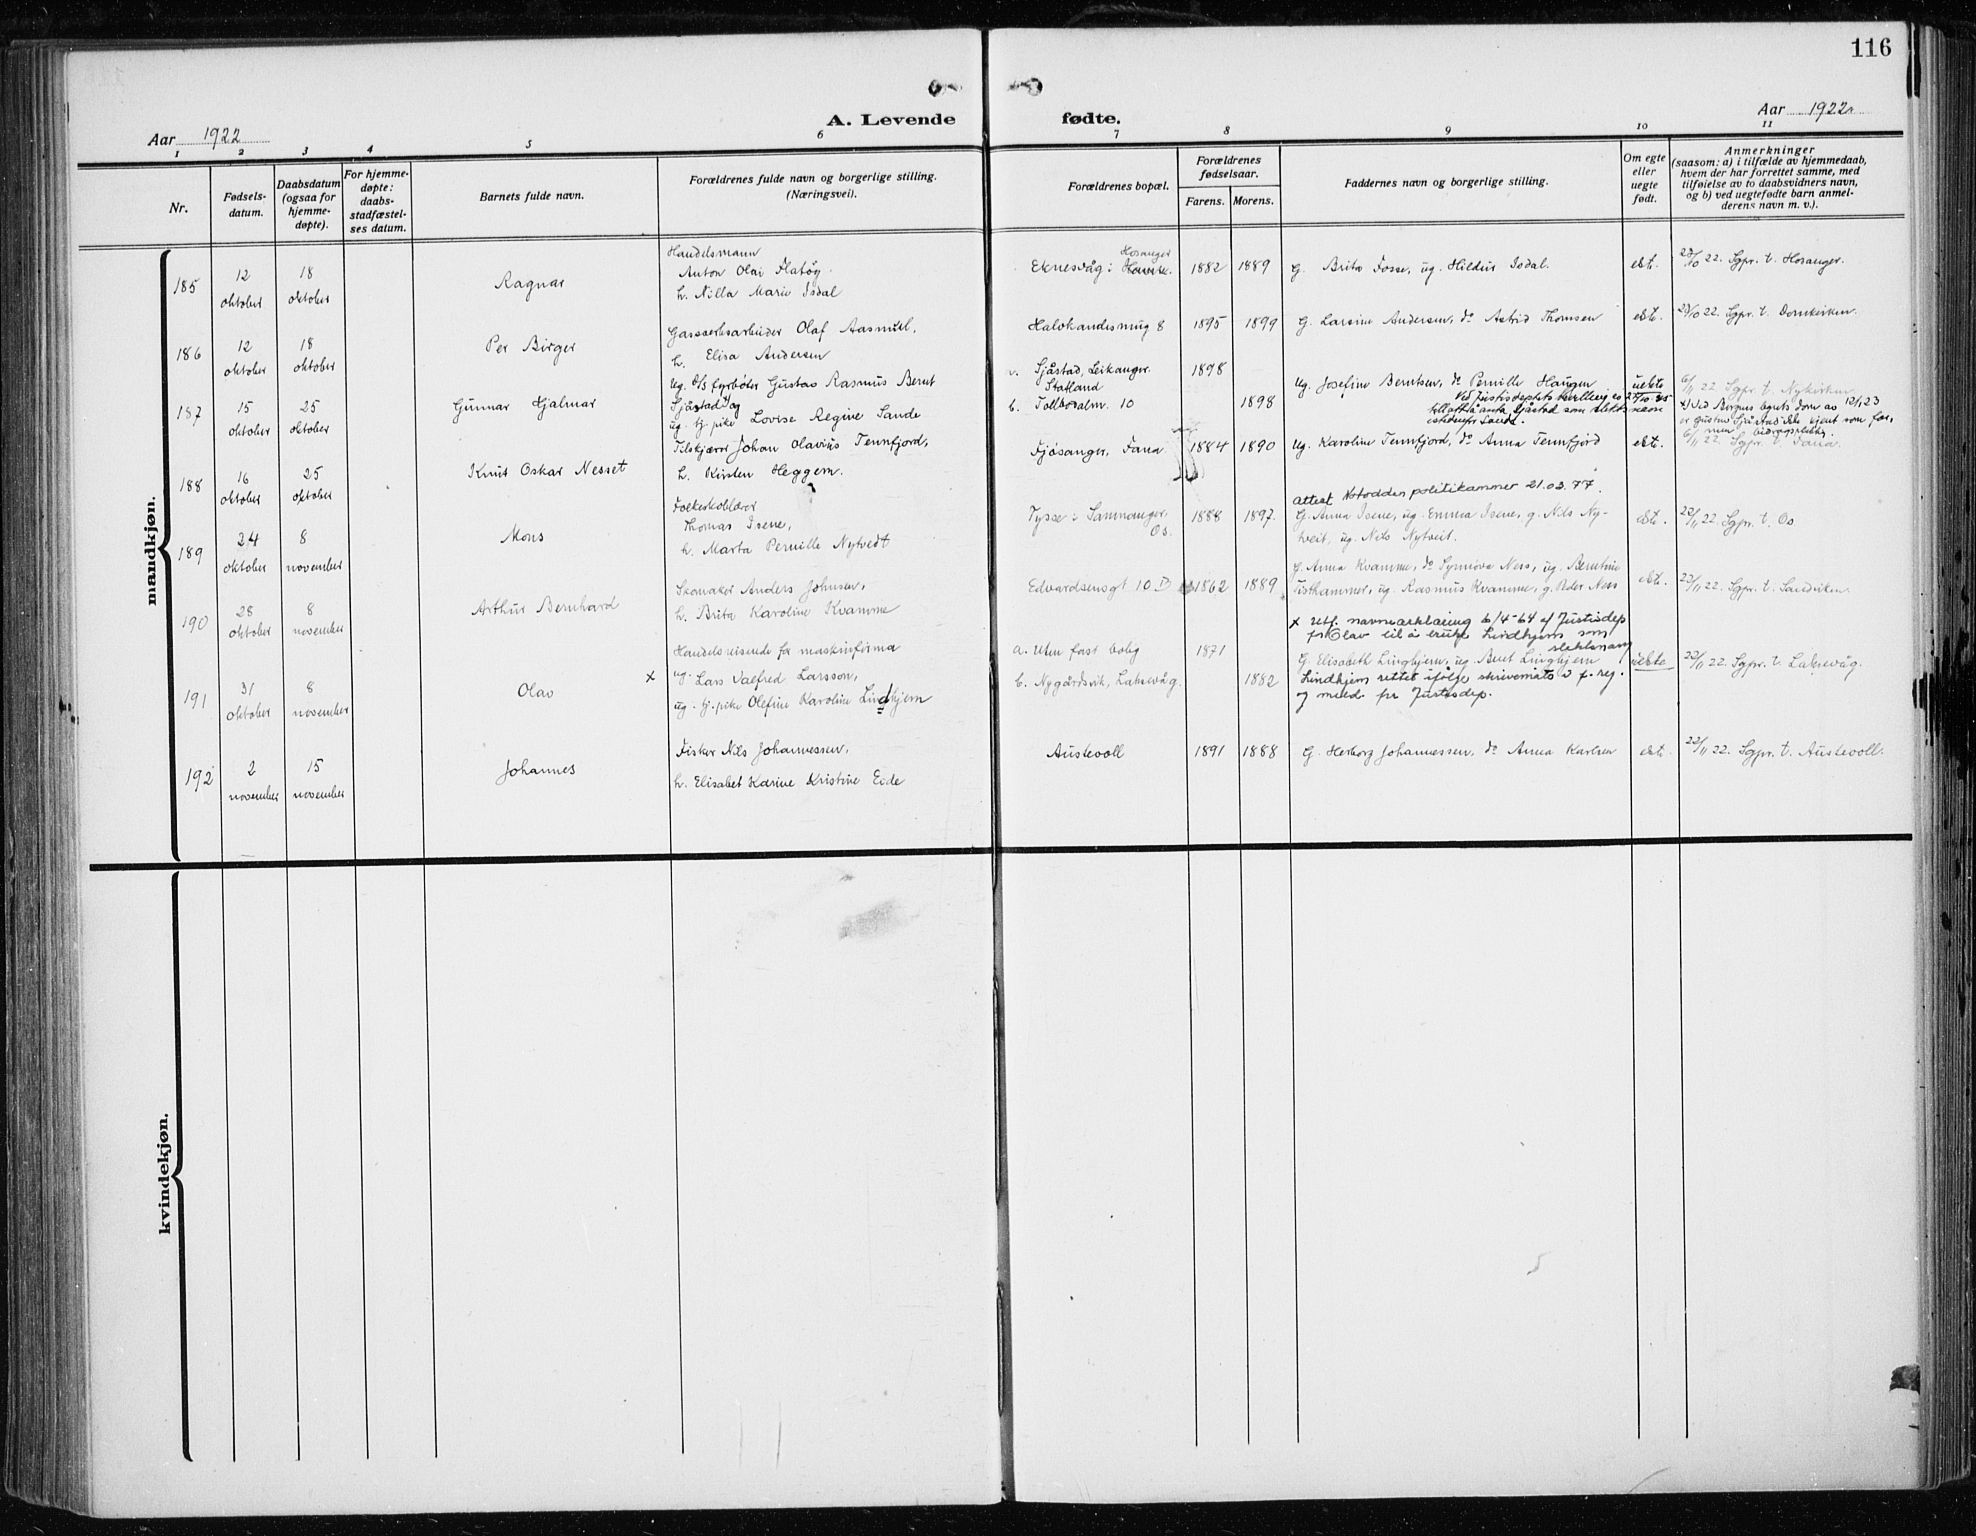 116
Aar 1922
A. Levende
fødte.
Aar 1922
1 2 3 4 5 6 7 8 9 10 11
Nr.
Fødsels-
datum.
Daabsdatum
(ogsaa for
hjemme-
døpte).
For hjemme-
døpte:
daabs-
stadfæstel-
ses datum.
Barnets fulde navn.
Forældrenes fulde navn og borgerlige stilling.
(Næringsvei).
Forældrenes bopæl.
Forældrenes
fødselsaar.
Farens. Morens.
Faddernes navn og borgerlige stilling.
Om egte
eller
uegte
født.
Anmerkninger
(saasom: a) i tilfælde av hjemmedaab,
hvem der har forrettet samme, med
tilføielse av to daabsvidners navn,
og b) ved uegtefødte barn anmel-
derens navn m. v.).
mandkjøn.
185
12
oktober
18
oktober
Ragnar
Handelsmann
Anton Olai Flatøy
h. Nilla Marie Isdal
Hosanger
Eknesvåg i
1882 1889
G. Brita Fosse, ug. Hildur Isdal.
ekt.
23/10 22. Sgpr. t. Hosanger.
186
12
oktober
18
oktober
Per Birger
Gassverksarbeider Olaf Aasmul,
h. Elisa Andersen
Halvkandesmug 8
1895 1899
G. Larsine Andersen, do Astrid Thomsen
ekt.
23/10 22. Sgpr. t. Domkirken.
187
15
oktober
25
oktober
Gunnar Hjalmar
Ug. d/s fyrbøter Gustav Rasmus Berut
Sjåstad og
ug. tj. pike Lovise Regine Sande
Sjåstad, Leikanger.
Statland
b. Tollbodalm. 10
1898
1898
Ug. Josefine Berntsen, do Pernille Haugen
Ved Justisdeptets bevilling
tillatt å anta Sjåstad som slektsnavn
istedenfor Sande.
uekte
6/11 22 Sgpr. t. Nykirken
x) Ved Bergens byrets dom av 12/1 23
er Gustav Sjåstad ikke kjent som far,
men bidragspliktig.
188
16
oktober
25
oktober
Knut Oskar Nesset
Tilskjærer Johan Olavius Tennfjord,
h. Kirsten Heggem.
Fjøsanger, Fana
1884 1890
Ug. Karoline Tennfjord, do Anna Tennfjord
ekt.
6/11 22. Sgpr. t. Fana.
Attest Notodden politikammer 21.03.77.
189
24
oktober
8
november
Mons
Folkeskolelærer
Thomas Isene,
h. Marta Pernille Nytvedt
Tysse i Samnanger
Os.
1888 1897.
G. Anna Isene, ug. Emma Isene, g. Nils Ny-
tveit, ug. Nils Nytveit.
ekt.
22/11 22. Sgpr. t. Os
190
28
oktober
8
november
Arthur Bernhard
Skomaker Anders Johnsen,
h. Brita Karoline Kvamme
Edvardsensgt 10 D
1862 1889
G. Anna Kvamme, do Synnøva Ness, ug. Berntine
Fisthammer, ug. Rasmus Kvamme, g. Peder Ness
ekt.
22/11 22. Sgpr. t. Sandviken
x Utf. navneerklæring 6/4-64 af Justisdep
fr Olav til å bruke Lindhjem som
slektsnavn
191
31
oktober
8
november
Olav
x
Handelsreisende for maskinfirma
ug. Lars Valfred Larsson,
ug. tj. pike Olefine Karoline Lindhjem
a. Uten fast bolig
b. Nygårdsvik, Laksevåg.
1871
1882
G. Elisabeth Linghjem, ug. Beret Linghjem
Lindhjem rettet ifølge skrivemåte i f. reg.
og meld. fr Justisdep.
uekte
22/11 22. Sgpr. t. Laksevåg.
192
2
november
15
november
Johannes
Fisker Nils Johannessen,
h. Elisabet Karine Kristine Eide
Austevoll
1891 1888
G. Herborg Johannessen, do Anna Karlsen
ekt.
22/11 22. Sgpr. t. Austevoll.
kvindekjøn.